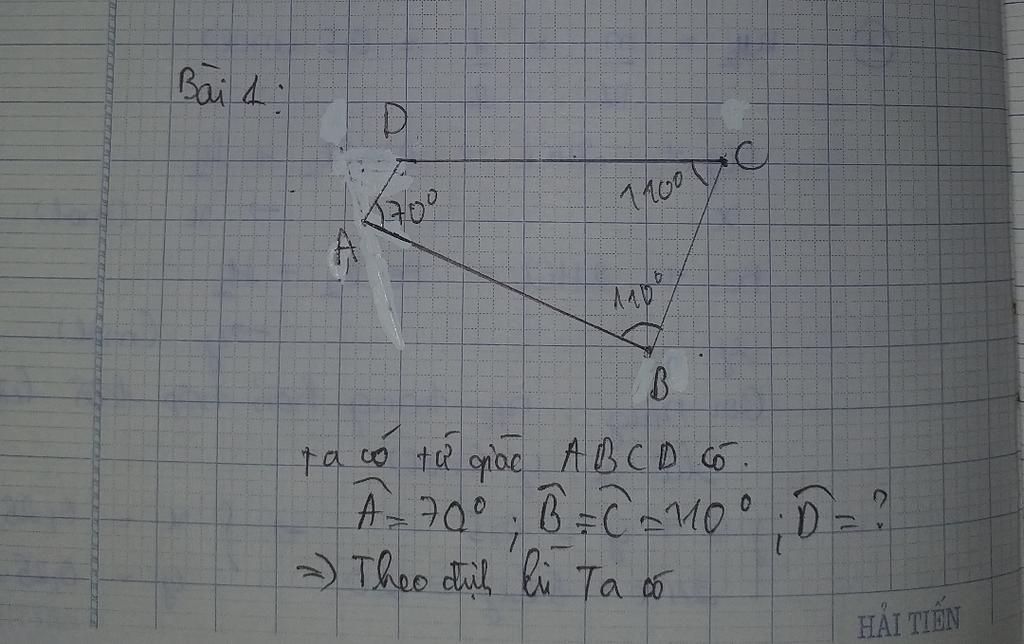 Bài 1:
D
C
110°
70°
A
110°
B
ta có tứ giác ABCD có.
Â = 70° ; B̂ = Ĉ = 110° ; D̂ = ?
=> Theo định lí Ta có
HẢI TIẾN